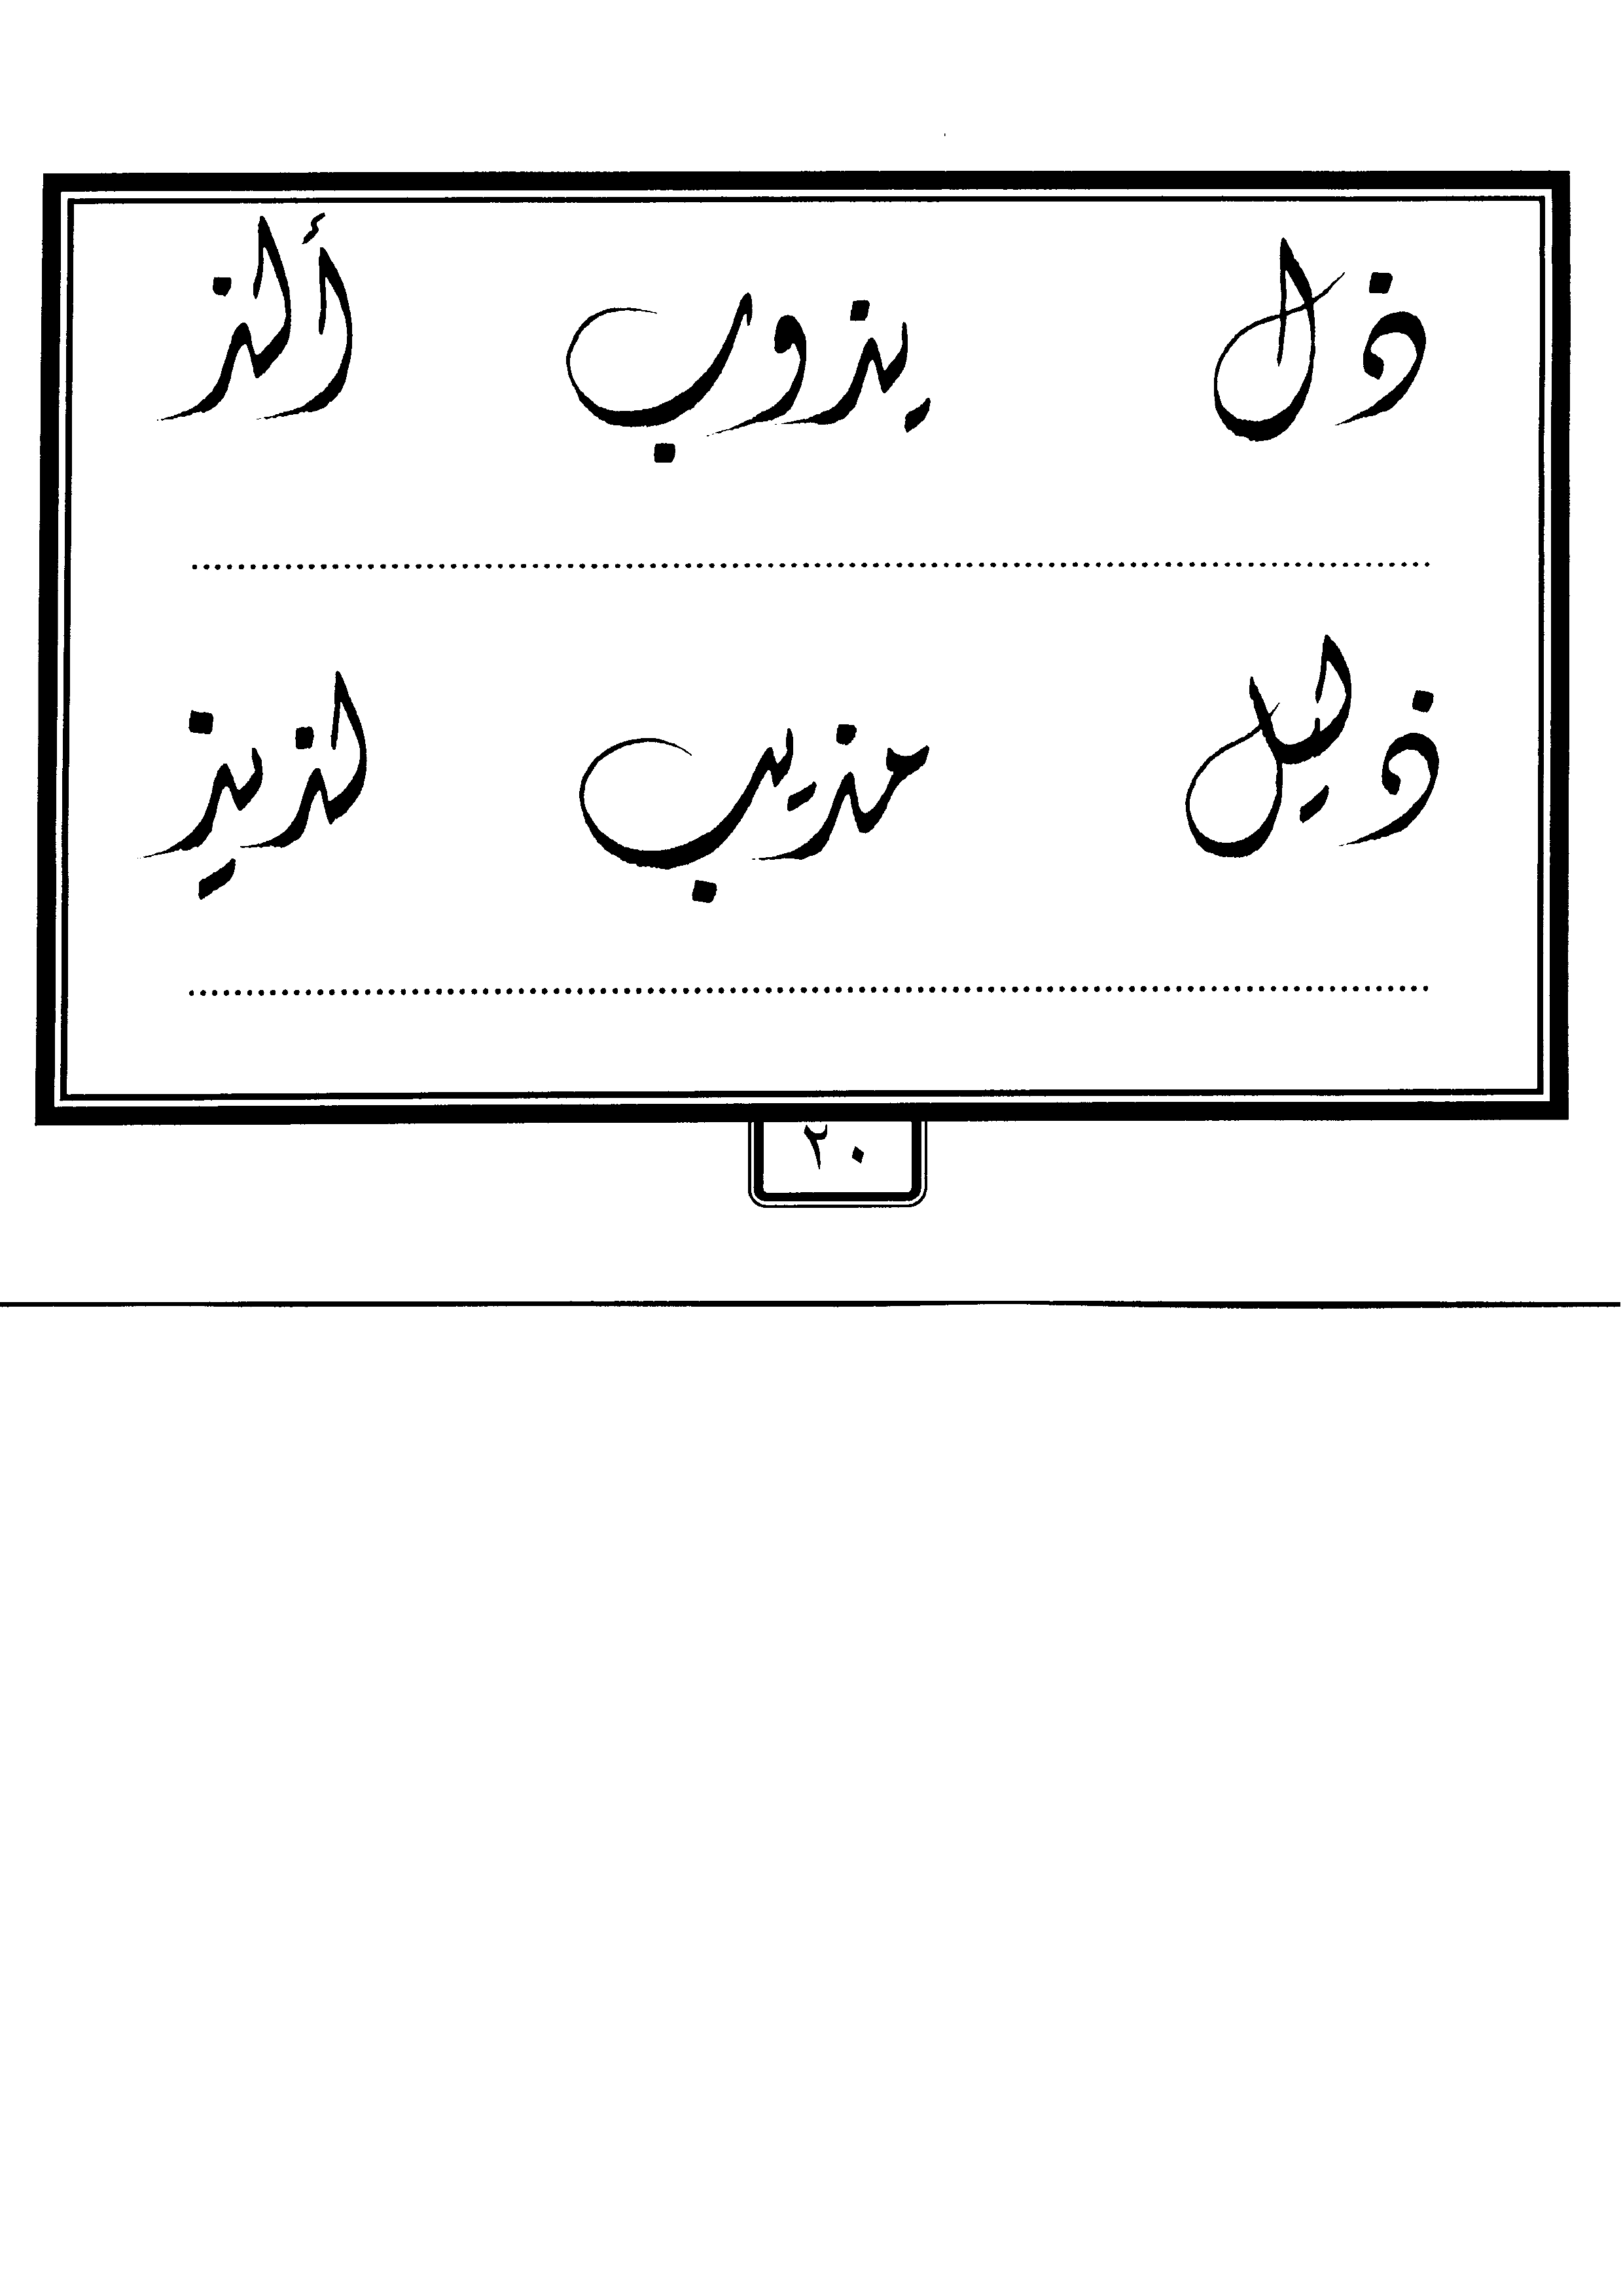 ذل يذوب ألذ
ذليل عذيب لذيذ
٢٠